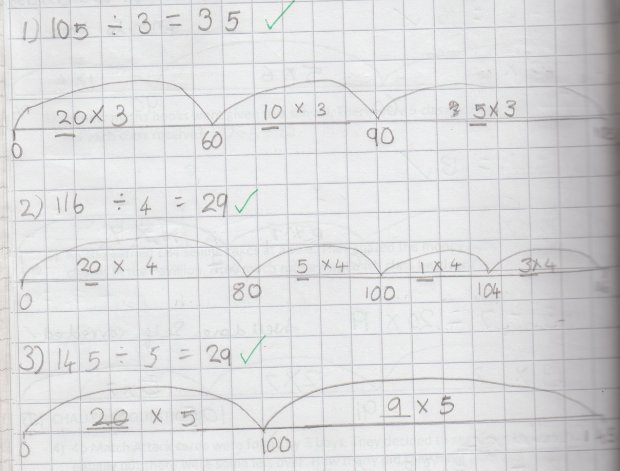 1) 105 ÷ 3 = 35
20 x 3 10 x 3 5 x 3
0 60 90
2) 116 ÷ 4 = 29
20 x 4 5 x 4 1 x 4 3 x 4
0 80 100 104
3) 145 ÷ 5 = 29
20 x 5 9 x 5
0 100